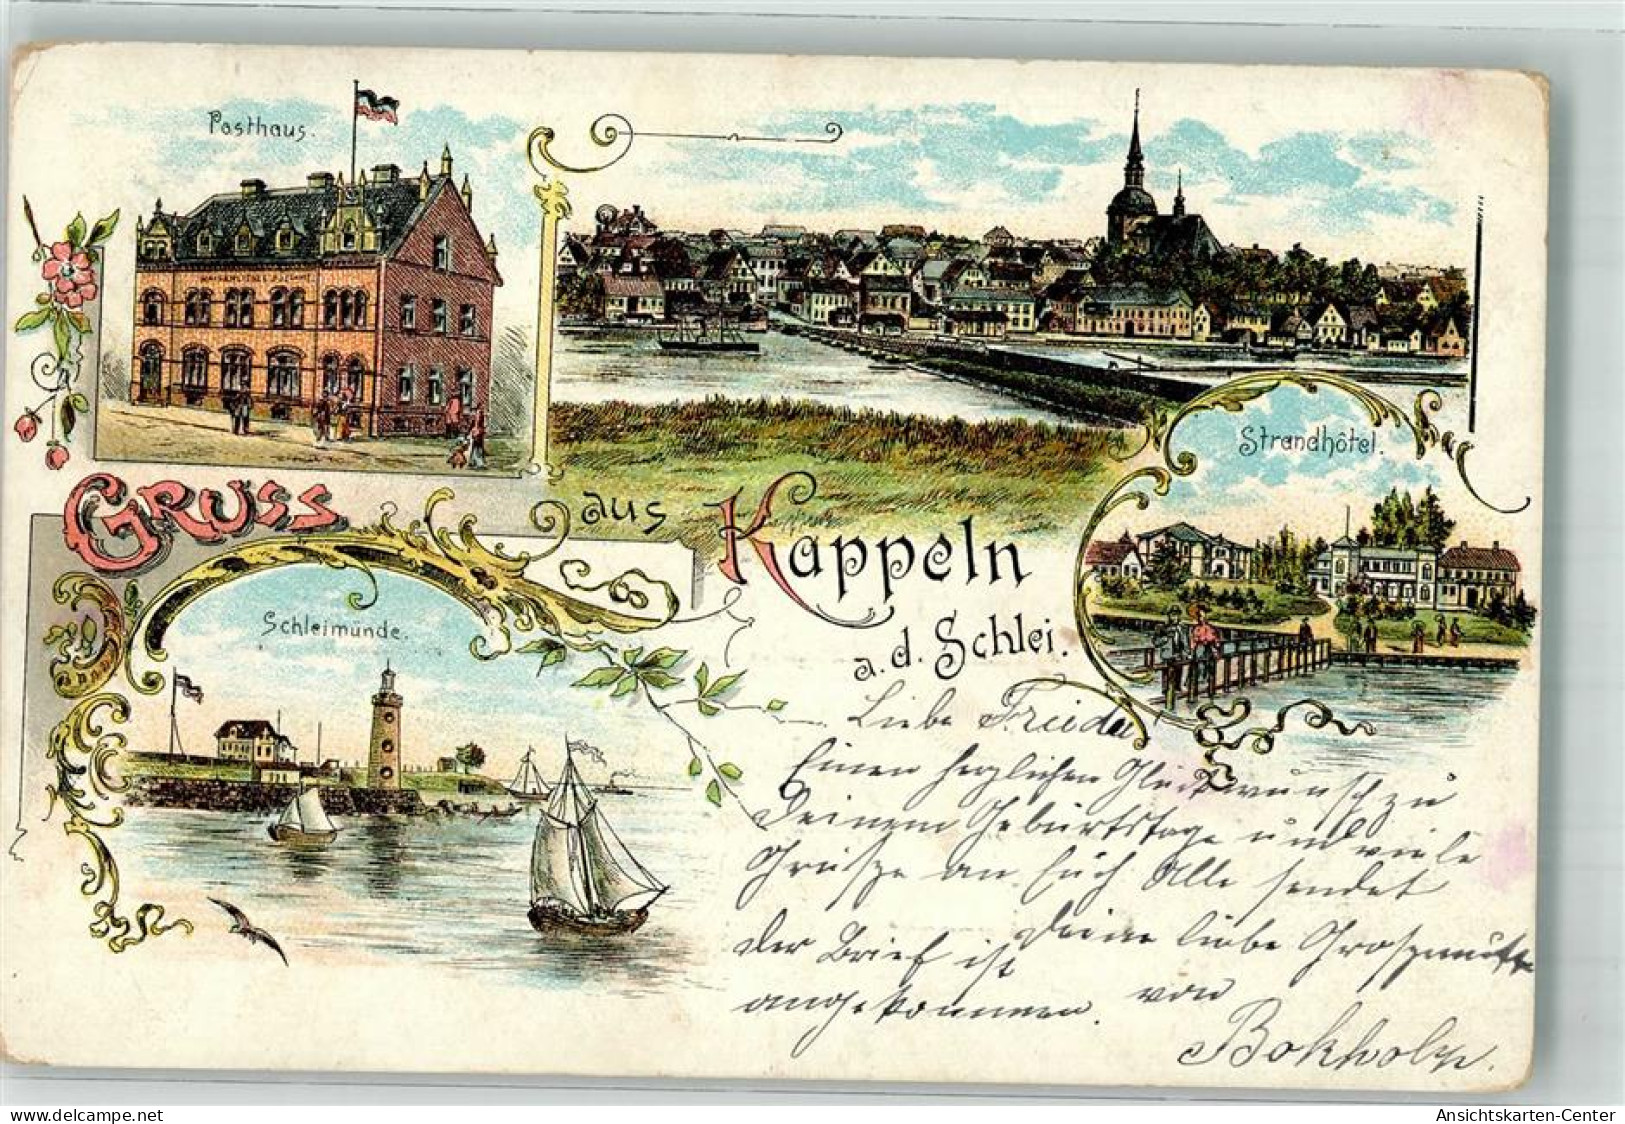 Posthaus.
KAISERLICHES POSTAMT
Strandhôtel.
GRUSS aus Kappeln
a. d. Schlei.
Schleimünde.
Liebe Frieda
Einen herzlichen Glückwunsch zu
Deinem Geburtstage und viele
Grüsze an Euch Alle sendet
Deine liebe Groszmutter
der Brief ist
angekommen. von
Bokholz.
www.delcampe.net lotti.com
Ansichtskarten-Center